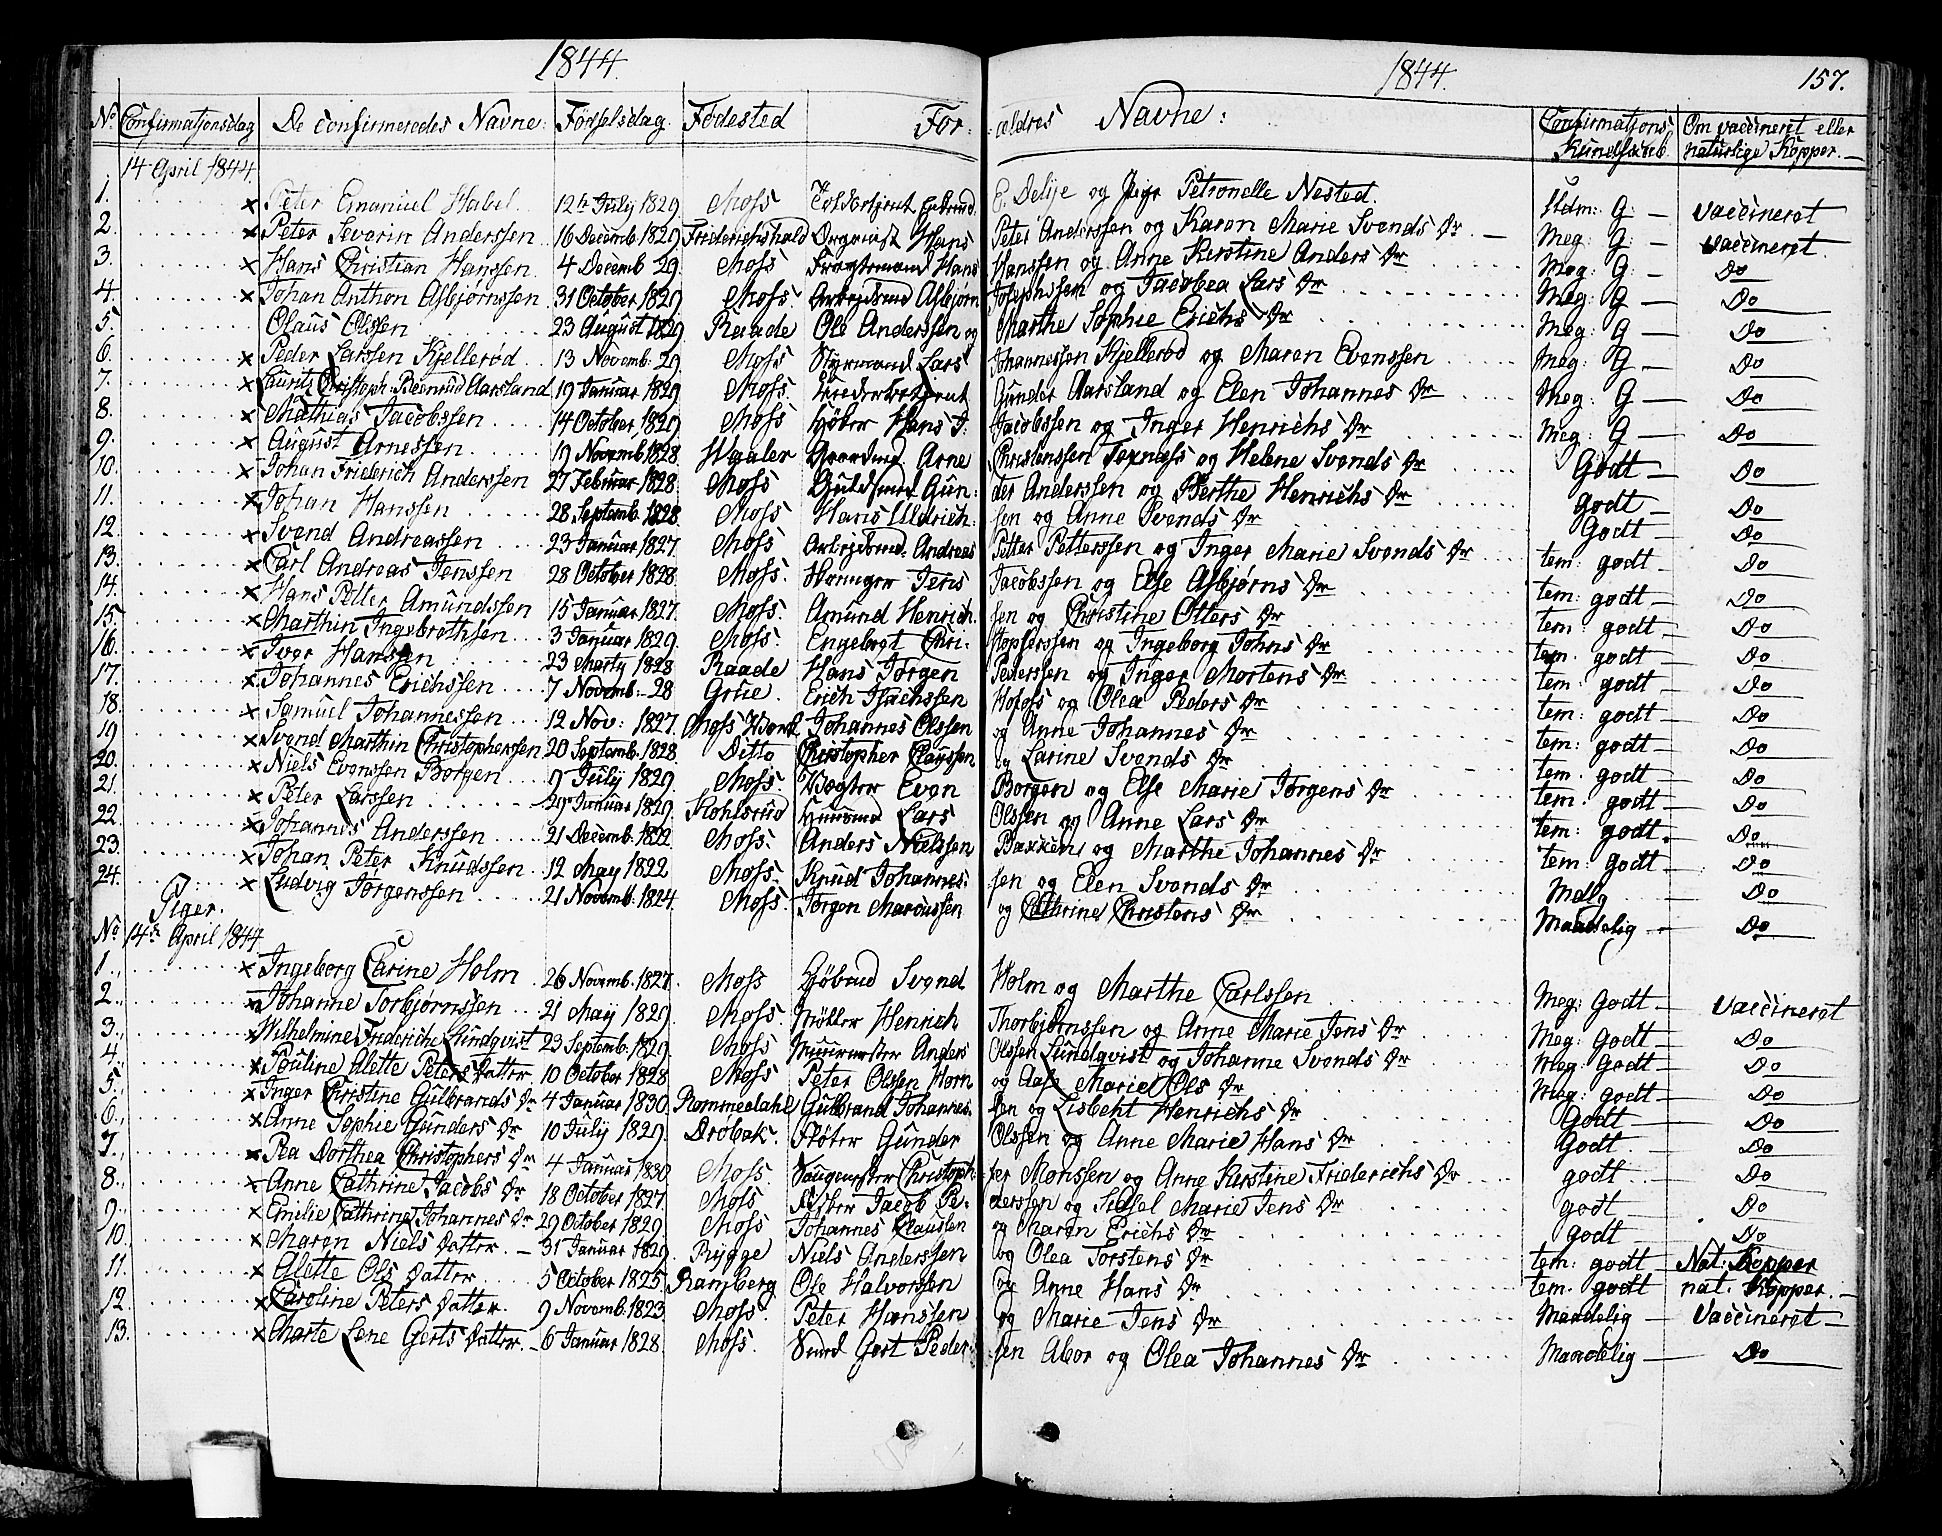 1844. 1844. 157.
No Confirmatjonsdag De confirmeredes Navne: Förselsdag. Fødested For: ældres Navne: Confirmatjons Kundskab. Om vaccineret eller naturlige Kopper.
14 April 1844.
1. × Peter Emanuel Habel. 12te July 1829 Moss E. Delye og Petronelle Nested. Udm: G: — vaccineret
2. × Peter Severin Anderssen 16 Decemb. 1829 Friderichshald Hans Peter Anderssen og Karen Marie Svends Dr. — Meg: G: — vaccineret.
3. × Hans Christian Hanssen 4 Decemb 29. Moss Hans Hanssen og Anne Kerstine Anders Dr Meg: G: — Do
4. × Johan Anthon Asbjørnssen 31 October 1829 Moss Arbejdsmd Asbjørn Josephssen og Jacobea Lars Dr Meg: G — Do
5. Olaus Olssen 23 August 1829 Raade Ole Anderssen og Marthe Sophie Erichs Dr Meg: G — Do
6. × Peder Larssen Kjellerød 13 Novemb: 29. Moss Styrmand Lars Johannessen Kjellerød og Maren Evenssen Meg: G. — Do
7. × Laurits Christoph: Aarsland 19 Januar 1829 Moss Underbetjent Gunder Aarsland og Elen Johannes Dr Meg: G — Do
8. × Mathias Jacobssen 14 October 1829 Moss Hans J: Jacobssen og Inger Henrichs Dr Meg: G — Do
9. × August Arnessen 19 Novemb. 1828. Waaler Gaardmd Arne Christenssen Texnæss og Helene Svends Dr Godt — Do
10. × Johan Friderich Anderssen 27 Februar 1828. Moss Guldsmed Gun: der Anderssen og Berthe Henrichs Dr godt — Do
11. × Johan Hanssen 28 Septemb. 1828. Moss Hans Uldrich: sen og Anne Svends Dr Godt — Do
12. × Svend Andreassen 23 Januar 1827. Moss Arbejdsmd: Andreas Petter Petterssen og Inger Marie Svends Dr tem: godt — Do
13. × Carl Andreas Jenssen 28 October 1828 Moss. Jens Jacobssen og Else Asbjørns Dr tem: godt — Do
14. × Hans Petter Amundssen 15 Januar 1827. Moss. Amund Henrich: sen og Christine Otters Dr tem: godt — Do
15. × Marthin Ingebrethsen 3 Januar 1829. Moss. Engebret Chri: stopherssen og Ingeborg Johns Dr tem: godt — Do
16. × Iver Hanssen 23 Marty 1828 Raade Hans Jørgen Pederssen og Inger Mortens Dr tem: godt — Do
17. × Johannes Erichssen 7 Novemb: 28 Grue. Erich Hofoss og Olea Peders Dr tem: godt — Do
18. × Samuel Johannessen 12 Nov: 1827. Moss Værk Johannes Olssen og Anne Johannes Dr tem: godt — Do
19. × Svend Marthin Christopherssen 20 Septemb. 1828. Ditto Christopher Claussen og Larine Svends Dr tem: godt — Do
20. × Niels Evenssen Borgen 9 July 1829. Moss. Vægter Even Borgen og Else Marie Jørgens Dr tem: godt — Do
21. × Peter Larssen 29 Januar 1829. Huusmd Lars Olssen og Anne Lars Dr tem: godt — Do
22. × Johannes Anderssen 21 Decemb. 1822. Moss. Anders Nielssen Bakken og Marthe Johannes Dr tem: godt. Do
23. × Johan Peter Knudssen 12 May 1822 Moss. Knud Johannes: sen og Elen Svends Dr tem: godt — Do
24. × Ludvig Jørgenssen 21 Novemb: 1824. Moss. Jørgen Marcussen og Cathrine Christens Dr Mdlg Do
Piger. Maadelig — Do
No 14de April 1844.
1. × Ingeborg Carine Holm 26 Novemb. 1827. Moss Svend Holm og Marthe Carlssen Meg: Godt — vaccineret
2. × Johanne Torbjørnssen 21 May 1829. Moss. Møller Henrich Thorbjørnssen og Anne Marie Jens Dr Meg: Godt — Do
3. × Wilhelmine Frideriche Lundqvist 23 Septemb. 1829. Moss Muurmester Anders Olssen Lundqvist og Johanne Svends Dr Meg: Godt — Do
4. × Pouline Alette Peters Datter 10 October 1828 Moss Peter Olssen Horn og Aase Marie Ols Dr Meg: godt — Do
5. × Inger Christine Gulbrands Dr 4 Januar 1830. Rommedahl Gulbrand Johannes: sen og Lisbeht Henrichs Dr Godt — Do
6. × Anne Sophie Gunders Dr 10 July 1829. Drøbak. Fløter Gunder Olssen og Anne Marie Hans Dr Godt. — Do
7. × Pea Dorthea Christophers Dr 4 Januar 1830 Moss. Saugmester Christoph: fer Monssen og Anne Kerstine Friderichs Dr godt — Do
8. × Anne Cathrine Jacobs Dr 18 October 1827. Moss. Jacob Pe: derssen og Sidsel Marie Jens Dr godt — Do
9. × Emilie Cathrine Johannes Dr 29 October 1829. Moss. Johannes Claussen og Maren Erichs Dr godt — Do
10. × Maren Niels Datter. — 31 Januar 1829. Rygge Niels Anderssen og Olea Torstens Dr tem: godt — Nat: Kopper
11. × Alette Ols Datter 5 October 1825. Ramberg Ole Halvorssen og Anne Hans Dr tem: godt nat. Kopper. —
12. × Caroline Peters Datter. 9 Novemb. 1823. Moss. Peter Hanssen og Marie Jens Dr Maadelig — Vaccineret —
13. × Marte Lene Gerts Datter. — 6 Januar 1828. Moss. Smed Gert Peder: sen Abor og Olea Johannes Dr Maadelig — Do